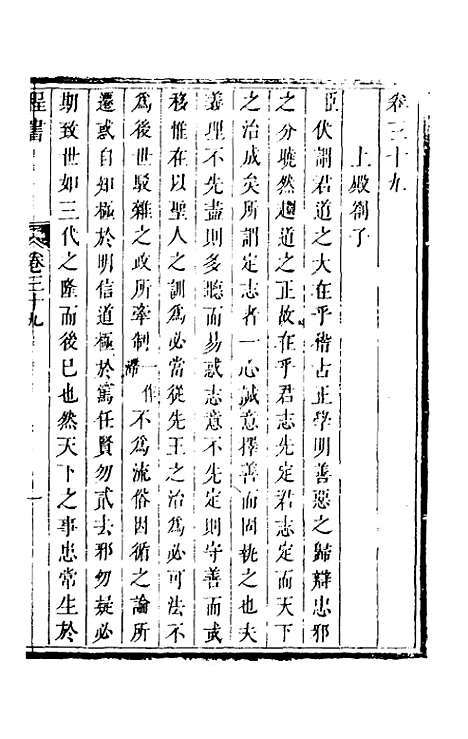 卷三十九
上殿劄子
臣伏謂君道之大在乎稽古正學明善惡之歸辯忠邪
之分曉然趨道之正故在乎君志先定君志定而天下
之治成矣所謂定志者一心誠意擇善而固執之也夫
義理不先盡則多聽而易惑志意不先定則守善而或
移惟在以聖人之訓爲必當從先王之治爲必可法不
爲後世駁雜之政所牽制一作滯不爲流俗因循之論所
遷或自知極於明信道極於篤任賢勿貳去邪勿疑必
期致世如三代之隆而後已也然天下之事患常生於
程書
卷三十九
一